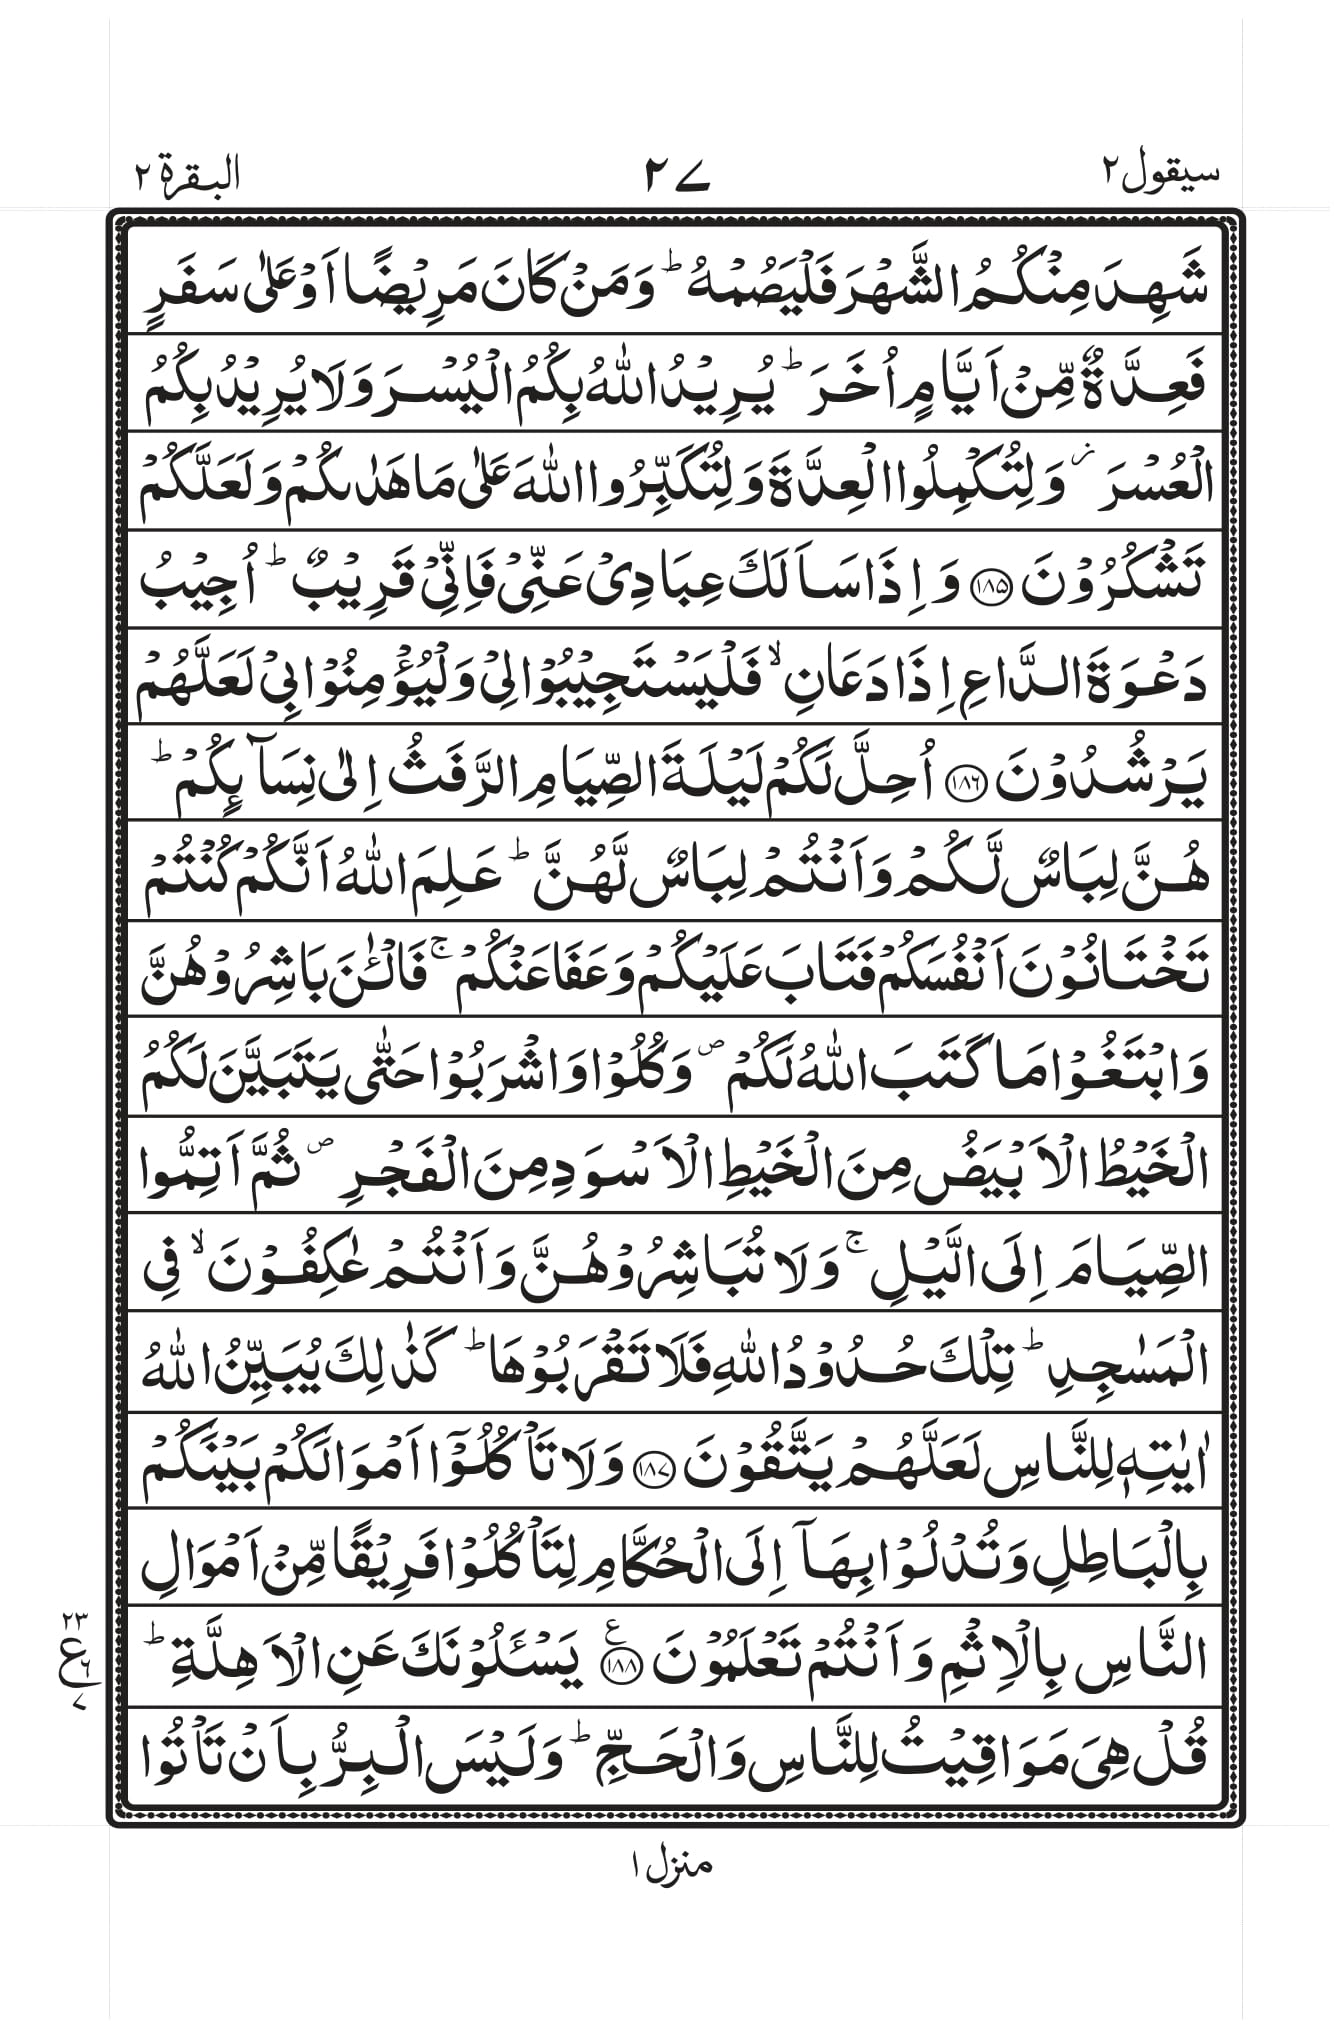 سيقول ٢
٢٧
البقرة ٢
شَهِدَ مِنْكُمُ الشَّهْرَ فَلْيَصُمْهُ ؕ وَمَنْ كَانَ مَرِيْضًا اَوْ عَلٰى سَفَرٍ
فَعِدَّةٌ مِّنْ اَيَّامٍ اُخَرَ ؕ يُرِيْدُ اللّٰهُ بِكُمُ الْيُسْرَ وَلَا يُرِيْدُ بِكُمُ
الْعُسْرَ ؗ وَلِتُكْمِلُوا الْعِدَّةَ وَلِتُكَبِّرُوا اللّٰهَ عَلٰى مَا هَدٰىكُمْ وَلَعَلَّكُمْ
تَشْكُرُوْنَ ﴿۱۸۵﴾ وَ اِذَا سَاَلَكَ عِبَادِىْ عَنِّىْ فَاِنِّىْ قَرِيْبٌ ؕ اُجِيْبُ
دَعْوَةَ الدَّاعِ اِذَا دَعَانِ ۙ فَلْيَسْتَجِيْبُوْا لِىْ وَلْيُؤْمِنُوْا بِىْ لَعَلَّهُمْ
يَرْشُدُوْنَ ﴿۱۸۶﴾ اُحِلَّ لَكُمْ لَيْلَةَ الصِّيَامِ الرَّفَثُ اِلٰى نِسَآىِٕكُمْ ؕ
هُنَّ لِبَاسٌ لَّكُمْ وَاَنْتُمْ لِبَاسٌ لَّهُنَّ ؕ عَلِمَ اللّٰهُ اَنَّكُمْ كُنْتُمْ
تَخْتَانُوْنَ اَنْفُسَكُمْ فَتَابَ عَلَيْكُمْ وَعَفَا عَنْكُمْ ۚ فَالْـٰٔنَ بَاشِرُوْهُنَّ
وَابْتَغُوْا مَا كَتَبَ اللّٰهُ لَكُمْ ۪ وَكُلُوْا وَاشْرَبُوْا حَتّٰى يَتَبَيَّنَ لَكُمُ
الْخَيْطُ الْاَبْيَضُ مِنَ الْخَيْطِ الْاَسْوَدِ مِنَ الْفَجْرِ ۪ ثُمَّ اَتِمُّوا
الصِّيَامَ اِلَى الَّيْلِ ۚ وَلَا تُبَاشِرُوْهُنَّ وَاَنْتُمْ عٰكِفُوْنَ ۙ فِى
الْمَسٰجِدِ ؕ تِلْكَ حُدُوْدُ اللّٰهِ فَلَا تَقْرَبُوْهَا ؕ كَذٰلِكَ يُبَيِّنُ اللّٰهُ
اٰيٰتِهٖ لِلنَّاسِ لَعَلَّهُمْ يَتَّقُوْنَ ﴿۱۸۷﴾ وَلَا تَاْكُلُوْۤا اَمْوَالَكُمْ بَيْنَكُمْ
بِالْبَاطِلِ وَتُدْلُوْا بِهَاۤ اِلَى الْحُكَّامِ لِتَاْكُلُوْا فَرِيْقًا مِّنْ اَمْوَالِ
النَّاسِ بِالْاِثْمِ وَاَنْتُمْ تَعْلَمُوْنَ ﴿۱۸۸﴾ ع يَسْـَٔلُوْنَكَ عَنِ الْاَهِلَّةِ ؕ
٢٣
ع ٦
٧
قُلْ هِىَ مَوَاقِيْتُ لِلنَّاسِ وَالْحَجِّ ؕ وَلَيْسَ الْبِرُّ بِاَنْ تَاْتُوا
منزل ١